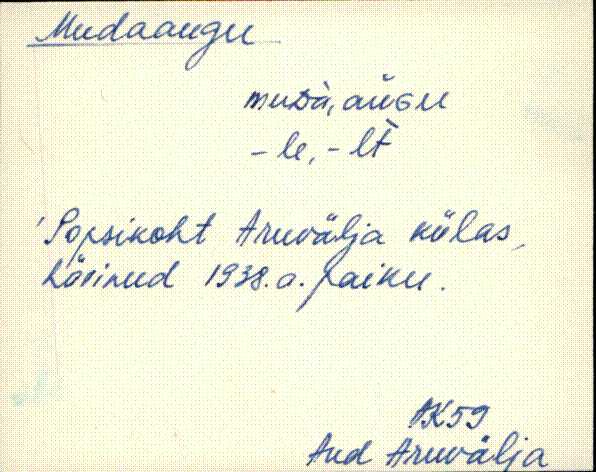 Mudaaugu
muDà, aùGu
- le, - lt̀
'Popsikoht Aruvälja külas,
hävinud 1938. a. paiku.
AK59
Aud Aruvälja